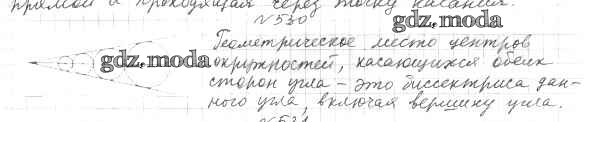 прямой и проходящая через точку касания.
N 530
gdz.moda
Геометрическое место центров
gdz.moda окружностей, касающихся обеих
сторон угла – это биссектриса дан-
ного угла, включая вершину угла.
N 531